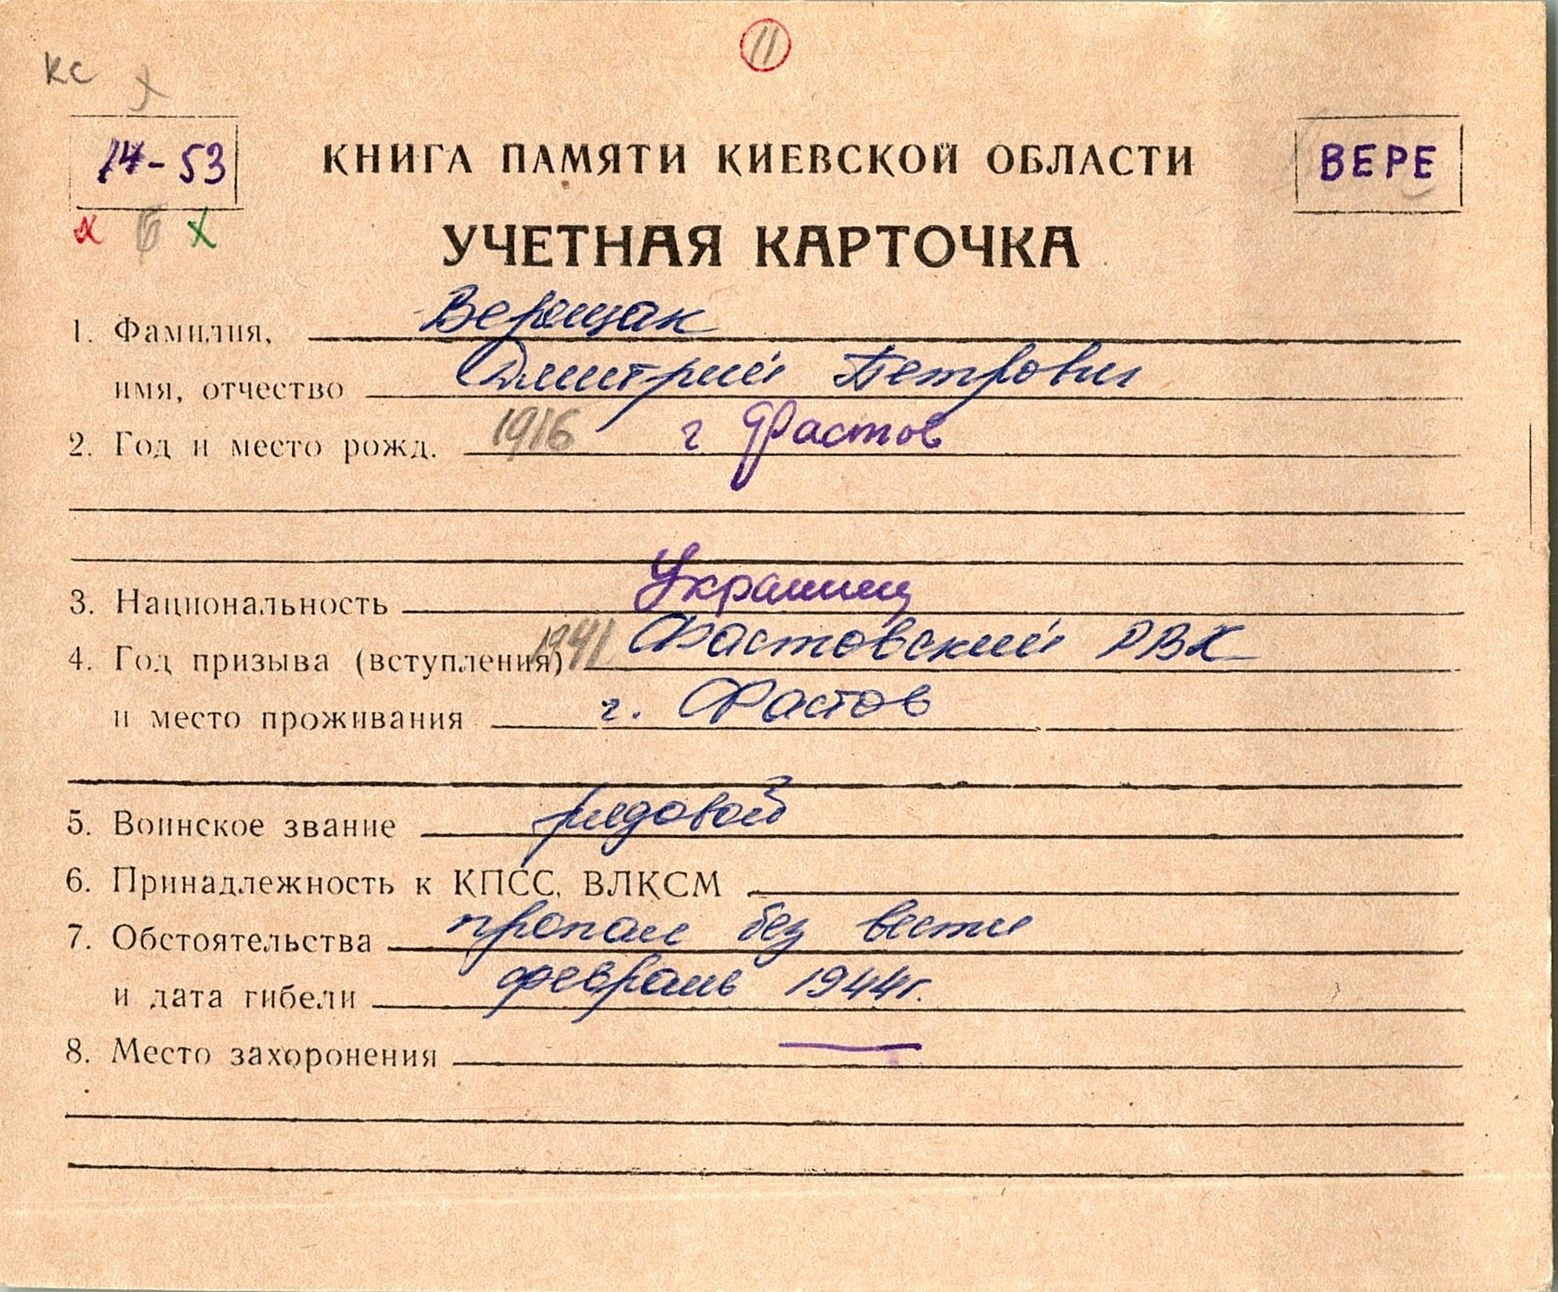 КС
11
14-53
КНИГА ПАМЯТИ КИЕВСКОЙ ОБЛАСТИ
ВЕРЕ
х 6 х
УЧЕТНАЯ КАРТОЧКА
1. Фамилия, Верещак
имя, отчество Дмитрий Петрович
2. Год и место рожд. 1916 г Фастов
3. Национальность Украинец
4. Год призыва (вступления) 1941 Фастовский РВК
и место проживания г. Фастов
5. Воинское звание рядовой
6. Принадлежность к КПСС, ВЛКСМ
7. Обстоятельства пропал без вести
и дата гибели февраль 1944г.
8. Место захоронения —